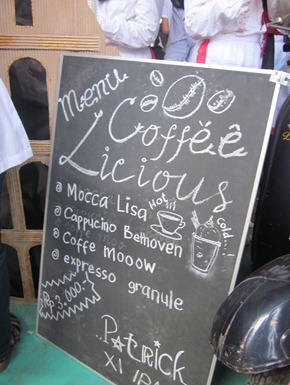 Menu
Coffêê
Licious
@ Mocca Lisa
Hot
@ Cappucino Bethoven
Cold...!
@ Coffe mooow
@ expresso granule
Rp 3.000,-
Patrick
XI IPA